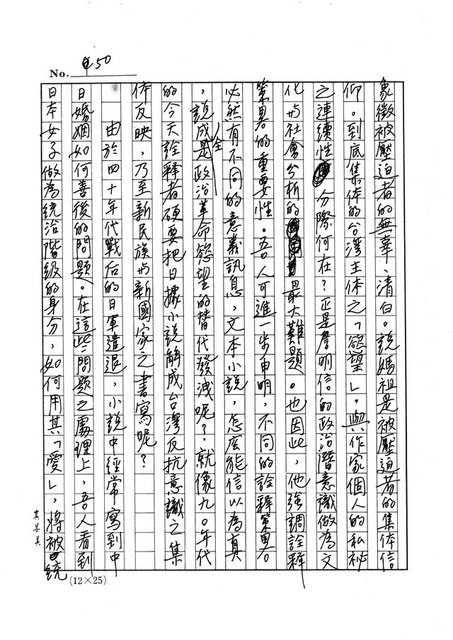 No. 50
象徵被壓迫者的無辜、清白。說媽祖是被壓迫者的集体信
仰。到底集体的台灣主体之「欲望」，與作家個人的私秘
之連續性分際何在？正是詹明信的政治潛意識做為文
化与社會分析的最大難題。也因此，他強調詮釋
策畧的重要性。吾人可進一步申明，不同的詮釋策畧，
必然有不同的意義訊息，文本小說，怎麼能信以為真
，說成是全政治革命慾望的替代發洩呢？就像九○年代
的今天詮釋者硬要把日據小說解成台灣反抗意識之集
体反映，乃至新民族与新國家之書寫呢？
由於四十年代戰后的日軍遣返，小說中經常寫到中
日婚姻如何善後的問題。在這些問題之處理上，吾人看到
日本女子做為統治階級的身分，如何用其「愛」，將被統
(12×25)